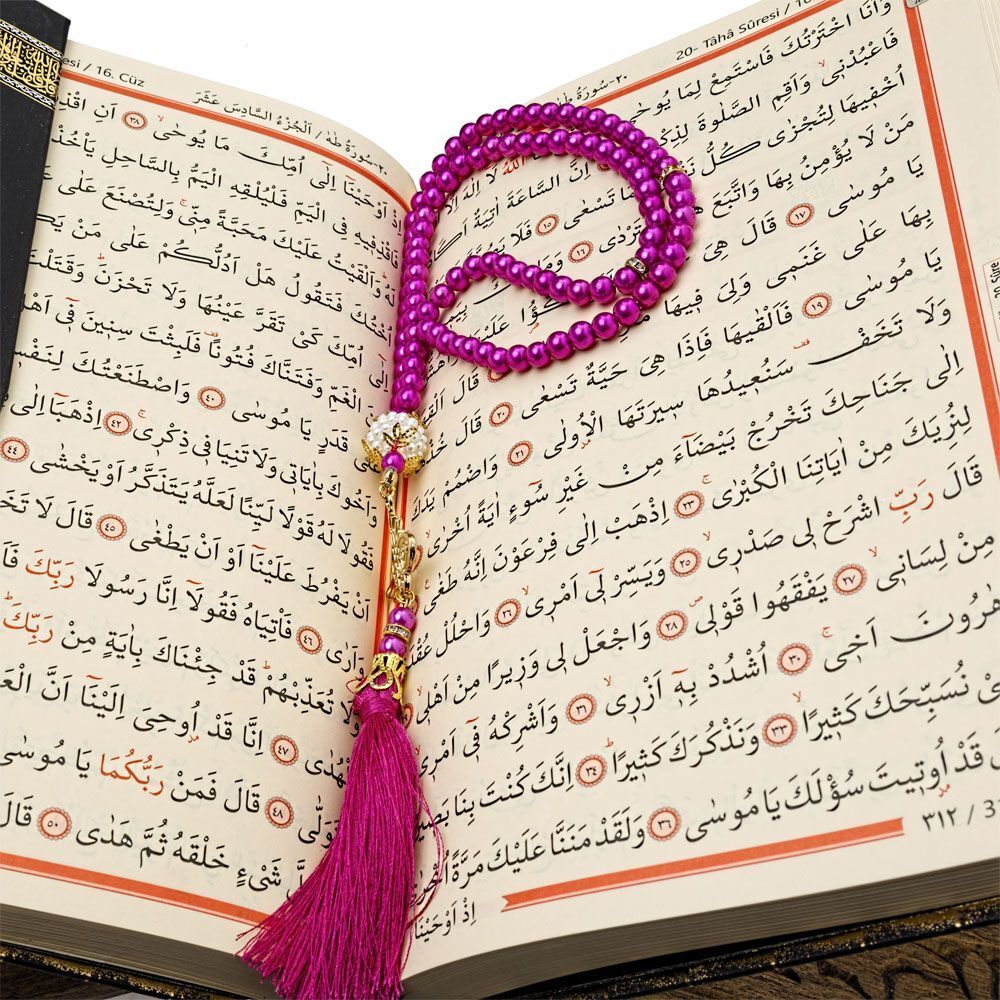 20- Tâhâ Sûresi / 16
٢٠-سُورَةُ طٰهٰ
وَاَنَا اخْتَرْتُكَ فَاسْتَمِعْ لِمَا يُوحٰى اللّٰهُ لَا اِلٰهَ
فَاعْبُدْنٖى وَاَقِمِ الصَّلٰوةَ اِنَّ السَّاعَةَ اٰتِيَةٌ اَكَادُ
اُخْفٖيهَا لِتُجْزٰى كُلُّ تَسْعٰى ١٥ فَلَا
مَنْ لَا يُؤْمِنُ بِهَا وَاتَّبَعَ فَتَرْدٰى ١٦ وَمَا
يَا مُوسٰى ١٧ قَالَ هِىَ عَلَيْهَا
بِهَا عَلٰى غَنَمٖى وَلِىَ فٖيهَا قَالَ
يَا مُوسٰى ١٩ فَاَلْقٰيهَا فَاِذَا هِىَ حَيَّةٌ تَسْعٰى ٢٠ قَالَ خُذْهَا
وَلَا تَخَفْ سَنُعٖيدُهَا سٖيرَتَهَا الْاُولٰى ٢١ وَاضْمُمْ يَدَكَ
اِلٰى جَنَاحِكَ تَخْرُجْ بَيْضَٓاءَ مِنْ غَيْرِ سُٓوءٍ اٰيَةً اُخْرٰى
لِنُرِيَكَ مِنْ اٰيَاتِنَا الْكُبْرٰى ٢٣ اِذْهَبْ اِلٰى فِرْعَوْنَ اِنَّهُ طَغٰى
قَالَ رَبِّ اشْرَحْ لٖى صَدْرٖى ٢٥ وَيَسِّرْ لٖٓى اَمْرٖى ٢٦ وَاحْلُلْ
مِنْ لِسَانٖى ٢٧ يَفْقَهُوا قَوْلٖى ٢٨ وَاجْعَلْ لٖى وَزٖيرًا مِنْ اَهْلٖى
هٰرُونَ اَخٖى ٣٠ اُشْدُدْ بِهٖٓ اَزْرٖى ٣١ وَاَشْرِكْهُ فٖٓى اَمْرٖى
نُسَبِّحَكَ كَثٖيرًا ٣٣ وَنَذْكُرَكَ كَثٖيرًا ٣٤ اِنَّكَ كُنْتَ بِنَا بَصٖيرًا
قَدْ اُو۫تٖيتَ سُؤْلَكَ يَا مُوسٰى ٣٦ وَلَقَدْ مَنَنَّا عَلَيْكَ مَرَّةً
٣١٢ / 3
اِذْ اَوْحَيْنَٓا
esi / 16. Cüz
٢٠-سُورَةُ طٰهٰ / اَلْجُزْءُ السَّادِسَ عَشَرَ
اِذْ اَوْحَيْنَٓا اِلٰٓى اُمِّكَ مَا يُوحٰى ٣٨ اَنِ
فَاقْذِفٖيهِ فِى الْيَمِّ فَلْيُلْقِهِ الْيَمُّ بِالسَّاحِلِ يَاْخُذْهُ
لَهُ وَاَلْقَيْتُ عَلَيْكَ مَحَبَّةً مِنّٖى وَلِتُصْنَعَ عَلٰى
اُخْتُكَ فَتَقُولُ هَلْ اَدُلُّكُمْ عَلٰى مَنْ
اِلٰٓى اُمِّكَ كَىْ تَقَرَّ عَيْنُهَا وَلَا تَحْزَنَ وَقَتَلْتَ
مِنَ الْغَمِّ وَفَتَنَّاكَ فُتُونًا فَلَبِثْتَ سِنٖينَ فٖٓى
عَلٰى قَدَرٍ يَا مُوسٰى ٤٠ وَاصْطَنَعْتُكَ لِنَفْسٖى
وَاَخُوكَ بِاٰيَاتٖى وَلَا تَنِيَا فٖى ذِكْرٖى ٤٢ اِذْهَبَٓا اِلٰى
فَقُولَا لَهُ قَوْلًا لَيِّنًا لَعَلَّهُ يَتَذَكَّرُ اَوْ يَخْشٰى ٤٤
اَنْ يَفْرُطَ عَلَيْنَٓا اَوْ اَنْ يَطْغٰى ٤٥ قَالَ لَا
وَاَرٰى ٤٦ فَاْتِيَاهُ فَقُولَٓا اِنَّا رَسُولَا رَبِّكَ
وَلَا تُعَذِّبْهُمْ قَدْ جِئْنَاكَ بِاٰيَةٍ مِنْ رَبِّكَ
٤٧ اِنَّا قَدْ اُو۫حِىَ اِلَيْنَٓا اَنَّ
وَتَوَلّٰى ٤٨ قَالَ فَمَنْ رَبُّكُمَا يَا مُوسٰى
شَىْءٍ خَلْقَهُ ثُمَّ هَدٰى ٥٠ قَالَ